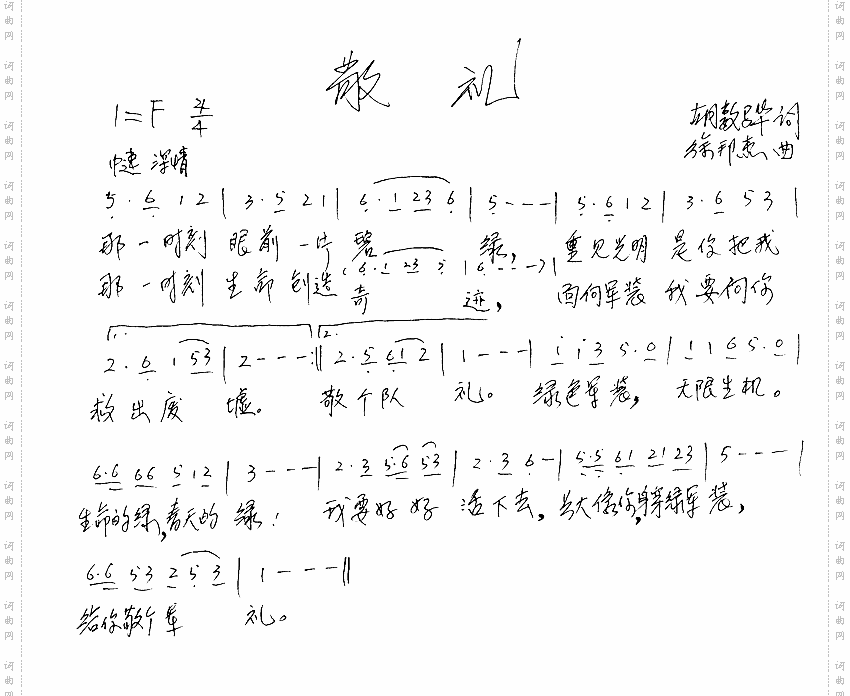 敬 礼
1=F 4/4
胡敦华词
中速 深情
徐邦杰曲
5·6 1 2 | 3·5 2 1 | 6·1 23 6 | 5 - - - | 5·6 1 2 | 3·6 5 3 |
那一时刻 眼前一片碧 绿, 重见光明 是你把我
(6·1 23 5 | 6 - - -) |
那一时刻 生命创造奇 迹, 面向军装 我要向你
1. 2.
2·6 1 53 | 2 - - - :|| 2·5 61 2 | 1 - - - | i i3 5·0 | 1 1 6 5·0 |
救出废 墟。 敬个队 礼。 绿色军装, 无限生机。
6·6 66 5 12 | 3 - - - | 2·3 5·6 53 | 2·3 6 - | 5·5 61 21 23 | 5 - - - |
生命的绿,春天的 绿! 我要好好 活下去, 长大像你,身穿绿军装,
6·6 53 2 5 3 | 1 - - - ||
给你敬个军 礼。
词曲网